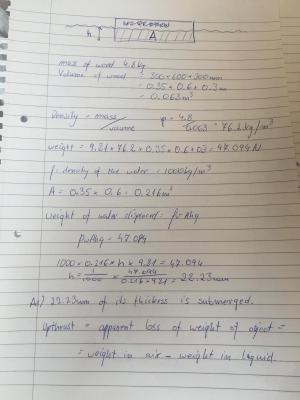 h
A
mass of wood 4.8kg
Volume of wood = 350 x 600 x 300mm
= 0.35 x 0.6 x 0.3m
= 0.063m³
Density = mass/volume ρ = 4.8/0.063 = 76.2kg/m³
weight = 9.81 x 76.2 x 0.35 x 0.6 x 0.3 = 47.094 N
ρ = density of the water = 1000kg/m³
A = 0.35 x 0.6 = 0.216m²
Weight of water displaced = ρwAhg
ρwAhg = 47.094
1000 x 0.216 x h x 9.81 = 47.094
h = 1/1000 x 47.094/0.216 x 9.81 = 22.23mm
A1) 22.23mm of its thickness is submerged.
Upthrust = apparent loss of weight of object =
= weight in air - weight in liquid.